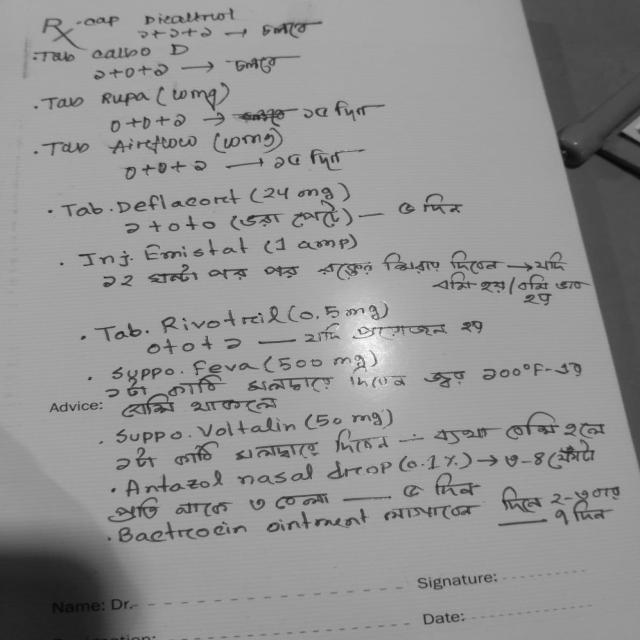 Rx
· cap Dicaltrol
১+১+১ → চলবে
· Tab calbo D
১+০+১ → চলবে
· Tab Rupa (10mg)
০+০+১ → ১৫ দিন
· Tab Airflow (10mg)
০+০+১ → ১৫ দিন
· Tab. Deflacort (24 mg)
১+০+০ (ভরা পেটে) — ৫ দিন
· Inj. Emistat (1 amp)
১২ ঘন্টা পর পর দিবেন → যদি
বমি হয়/বমি ভাব
হয়
· Tab. Rivotril (0.5 mg)
০+০+১ — যদি প্রয়োজন হয়
· Suppo. Feva (500 mg)
১টা কাঠি মলদ্বারে দিবেন জ্বর ১০০°F-এর
Advice: বেশি থাকলে
· Suppo. Voltalin (50 mg)
১টা কাঠি মলদ্বারে দিবেন — ব্যথা বেশি হলে
· Antazol nasal drop (0.1%) → ৩-৪ ফোঁটা
প্রতি নাকে ৩ বেলা — ৫ দিন
· Bactrocin ointment লাগাবেন দিনে ২-৩ বার
— ৭ দিন
Signature:
Name: Dr.
Date: